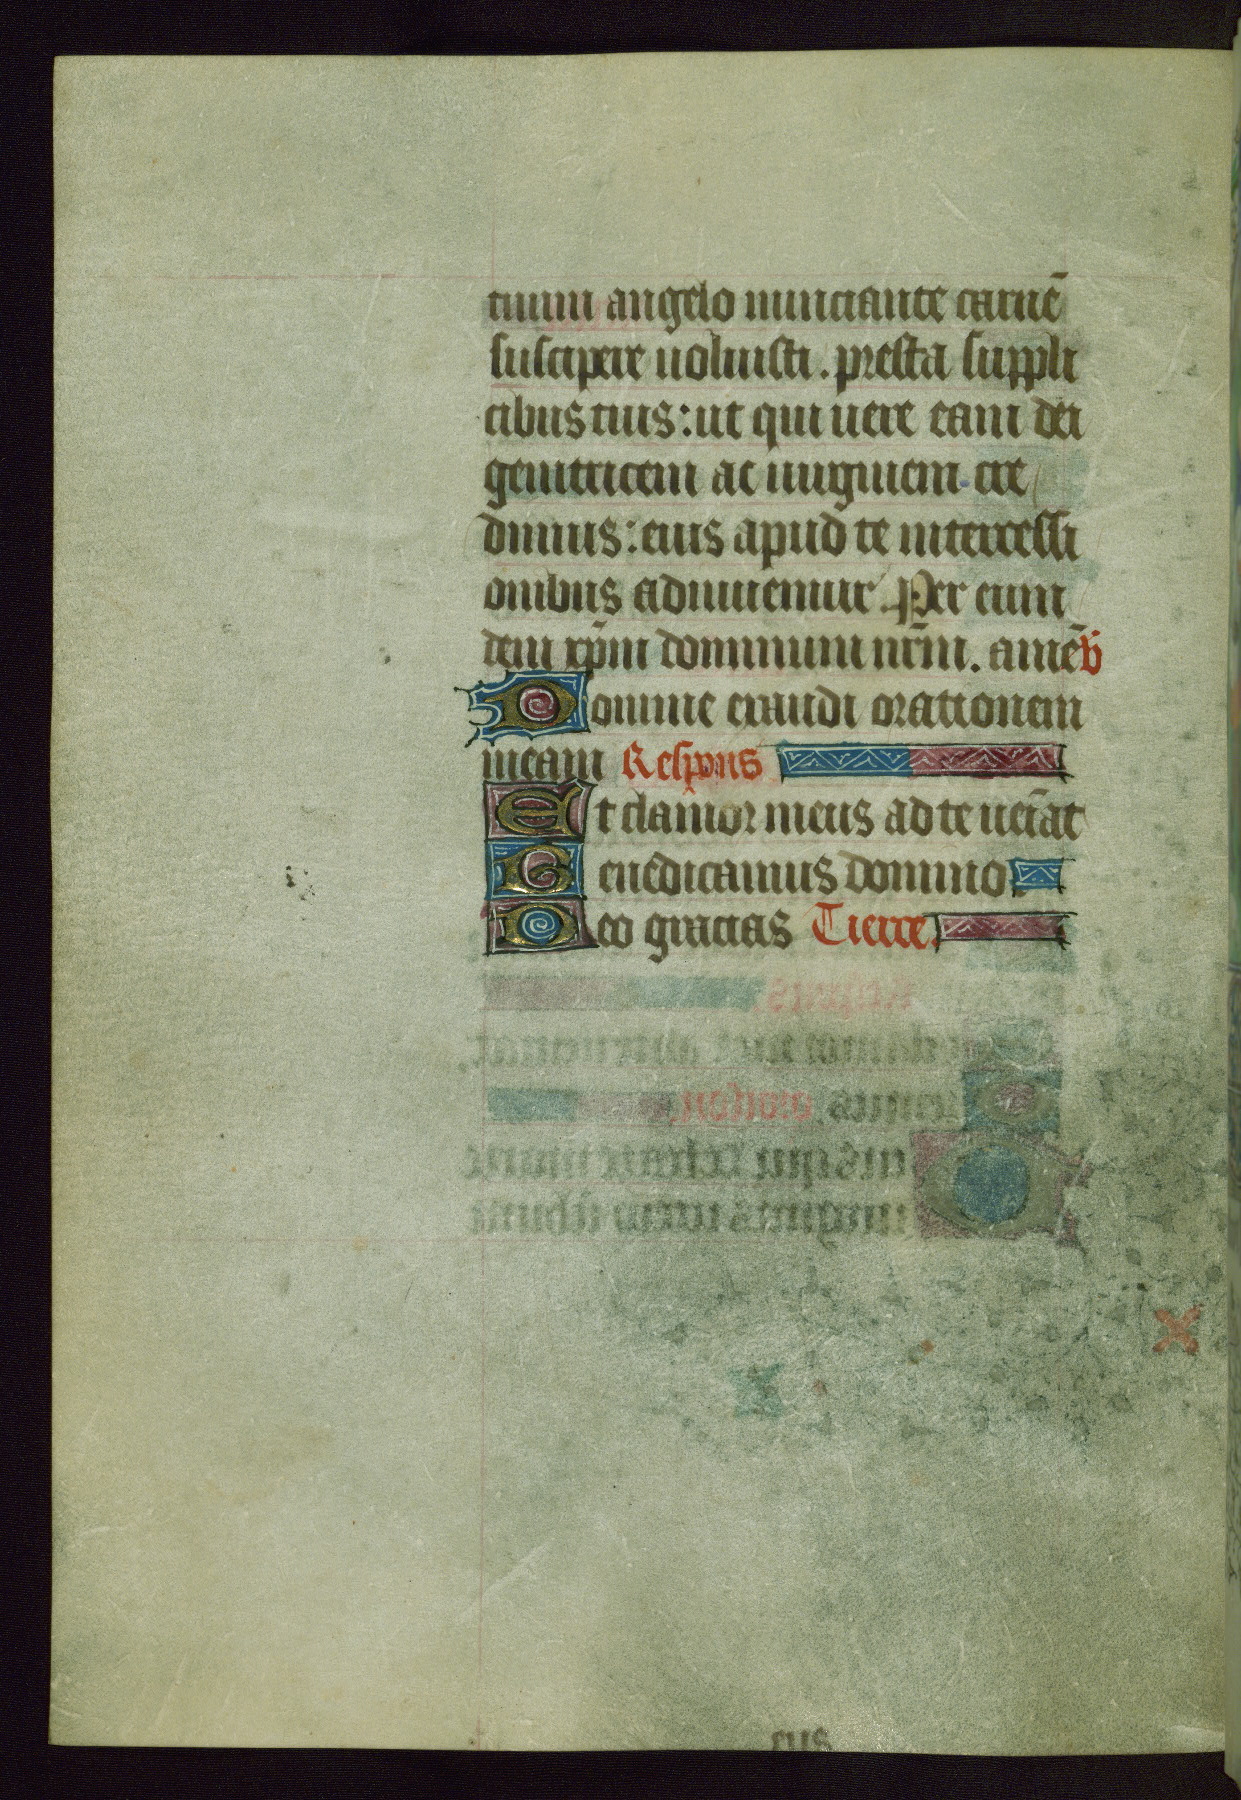 tuum angelo nunciante carnē
suscipere uoluisti. presta suppli
cibus tuis: ut qui uere eam dei
genitricem ac uirginem cre
dimus: eius apud te intercessi
onibus adiuuemur. Per eum
dem xp̄m dominum nr̄m. amē v̄
Domine exaudi orationem
meam Respons
Et clamor meus ad te ueīat
Benedicamus domino
Deo gracias Tierce.
eus